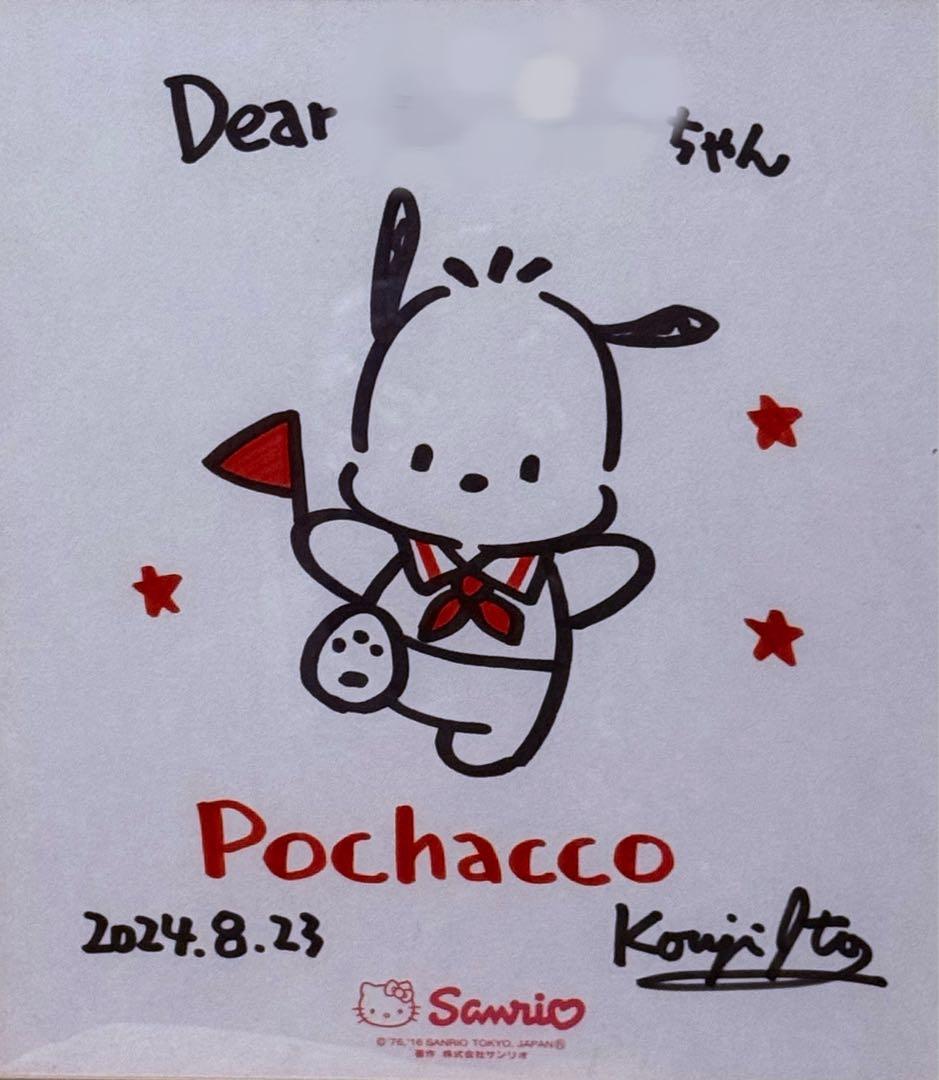 Dear ちゃん
Pochacco
2024.8.23
Kouji Ito
Sanrio
© '76, '16 SANRIO TOKYO, JAPAN Ⓗ
著作 株式会社サンリオ